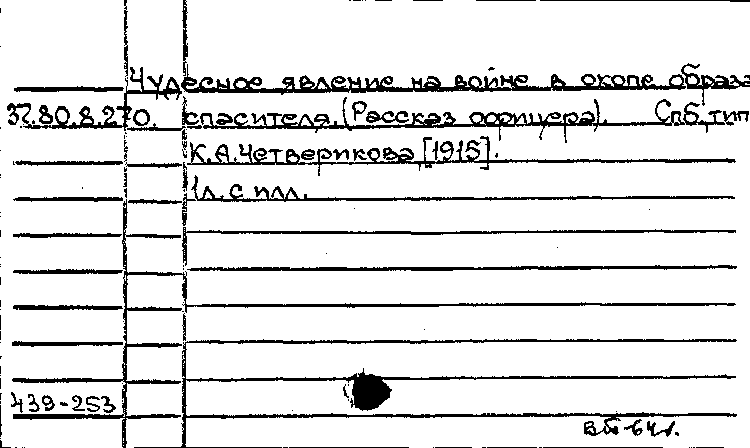 Чудесное явление на войне в окопе образа
37.80.8.270. спасителя. (Рассказ офицера). Спб, тип
К.А.Четверикова [1915].
1л. с илл.
439-253